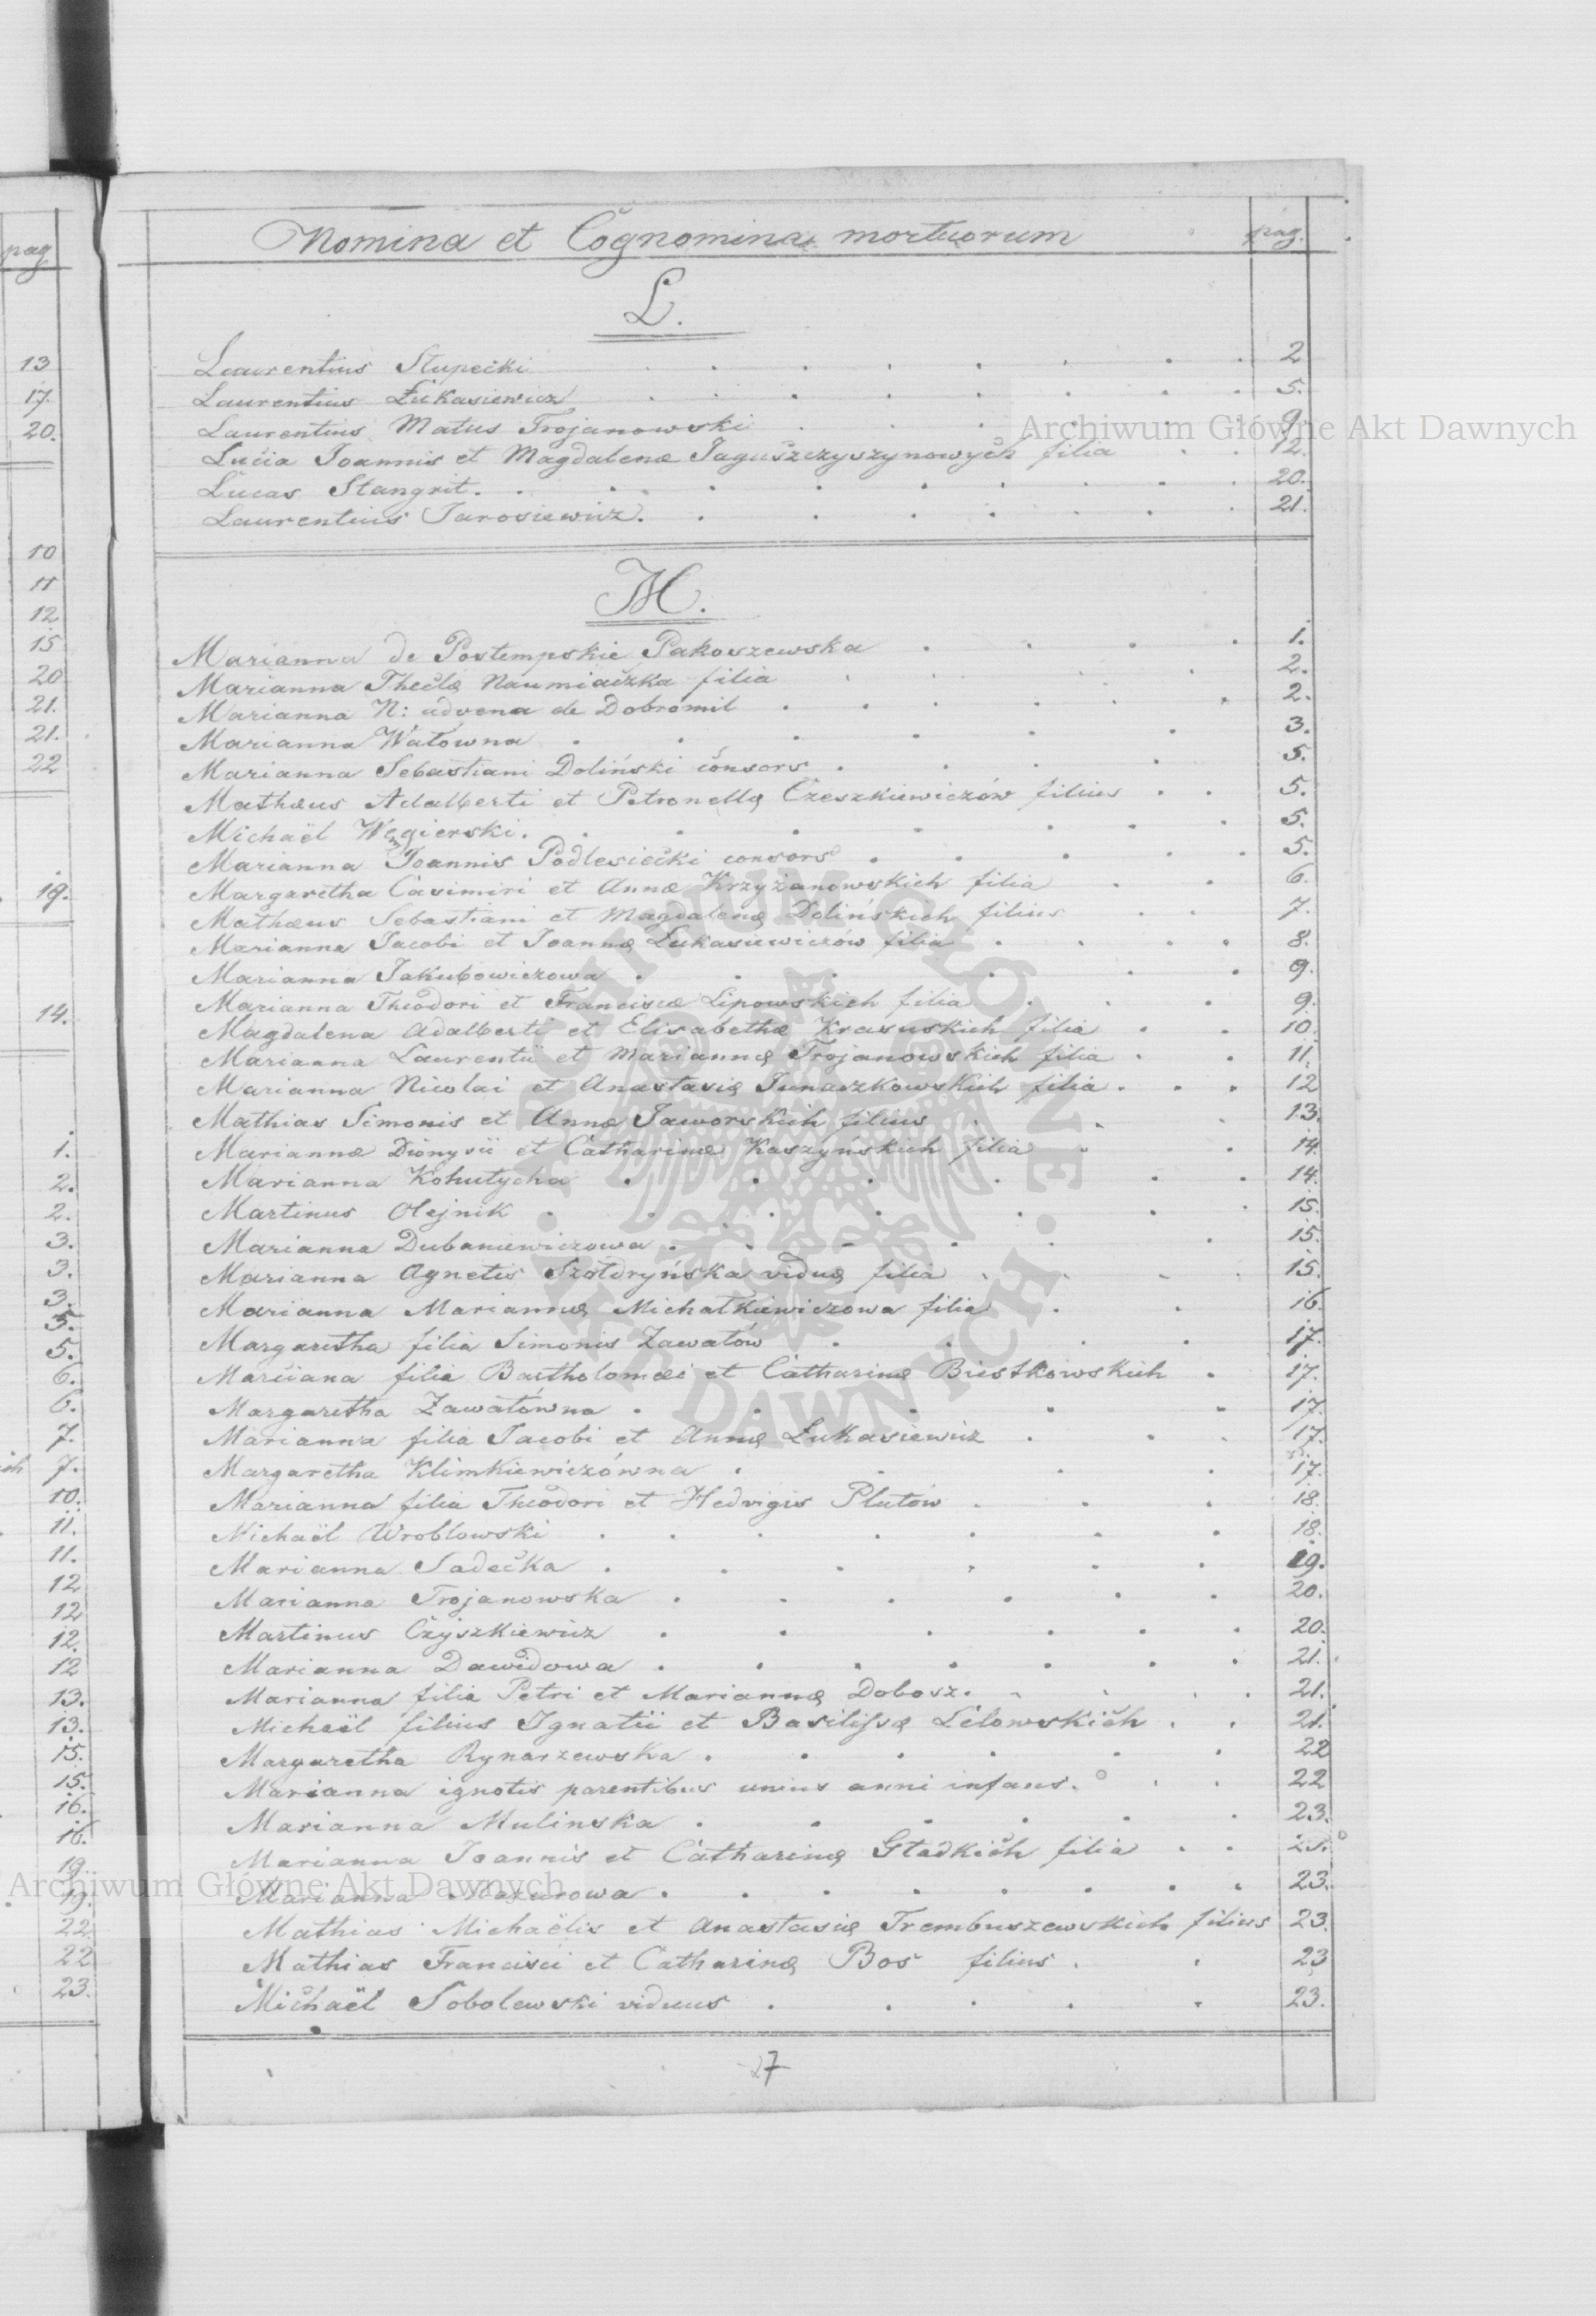 pag
13
17.
20.
10
11
12
15
20
21.
21.
22
19.
14.
1.
2.
2.
3.
3.
3.
5.
5.
6.
6.
7.
7.
10.
11.
11.
12
12
12.
12
13.
13.
15.
15.
16.
16.
19.
19.
22.
22
23.
Nomina et Cognomina mortuorum pag.
L.
Laurentius Słupecki 2
Laurentius Łukasiewicz 5.
Laurentius Matus Trojanowski 9
Lucia Joannis et Magdalenæ Jaguszczyszynowych filia 12.
Lucas Stangrit. 20.
Laurentius Jarosiewicz. 21.
M.
Marianna de Postempskie Pakoszewska 1.
Marianna Theclę Naumiaczka filia 2.
Marianna N: advena de Dobromil 2.
Marianna Watówna 3.
Marianna Sebastiani Doliński consors 5.
Mathæus Adalberti et Petronellę Czeszkiewiczów filius 5.
Michaël Węgierski. 5.
Marianna Joannis Podlesiecki consors 5.
Margaretha Casimiri et Annæ Krzyżanowskich filia 6.
Mathæus Sebastiani et Magdalenę Dolińskich filius 7.
Marianna Jacobi et Joannę Łukasiewiczów filia 8.
Marianna Jakubowiczowa 9.
Marianna Theodori et Franciscæ Lipowskich filia 9.
Magdalena Adalberti et Elisabethæ Krasuskich filia 10.
Marianna Laurentii et Mariannę Trojanowskich filia 11.
Marianna Nicolai et Anastasię Junaszkowskich filia 12
Mathias Simonis et Annæ Jaworskich filius 13.
Mariannæ Dionysii et Catharinæ Kaszyńskich filia 14.
Marianna Kohutycha 14.
Martinus Olejnik 15.
Marianna Dubaniewiczowa 15.
Marianna Agnetis Szołdryńska viduę filia 15.
Marianna Mariannę Michałkiewiczowa filia 16.
Margaretha filia Simonis Zawałów 17.
Marciana filia Bartholomæi et Catharinæ Biestkowskich 17.
Margaretha Zawałówna 17.
Marianna filia Jacobi et Annę Łukasiewicz 17.
Margaretha Klimkiewiczówna 17.
Marianna filia Theodori et Hedvigis Plutów 18.
Michaël Wroblowski 18.
Marianna Sadecka 19.
Marianna Trojanowska 20.
Martinus Czyszkiewicz 20.
Marianna Dawidowa 21.
Marianna filia Petri et Mariannę Dobosz. 21.
Michaël filius Ignatii et Basilissæ Lelowskich 21.
Margaretha Rynarzewska 22
Marianna ignotis parentibus unius anni infans. 22
Marianna Mulinska 23.
Marianna Joannis et Catharinę Gładkich filia 23.
Marianna Mazurowa 23.
Mathias Michaëlis et Anastasię Trembuszewskich filius 23.
Mathias Francisci et Catharinę Bos filius 23
Michaël Sobolewski viduus 23.
27
Archiwum Główne Akt Dawnych
Archiwum Główne Akt Dawnych
ARCHIWUM GŁÓWNE AKT DAWNYCH